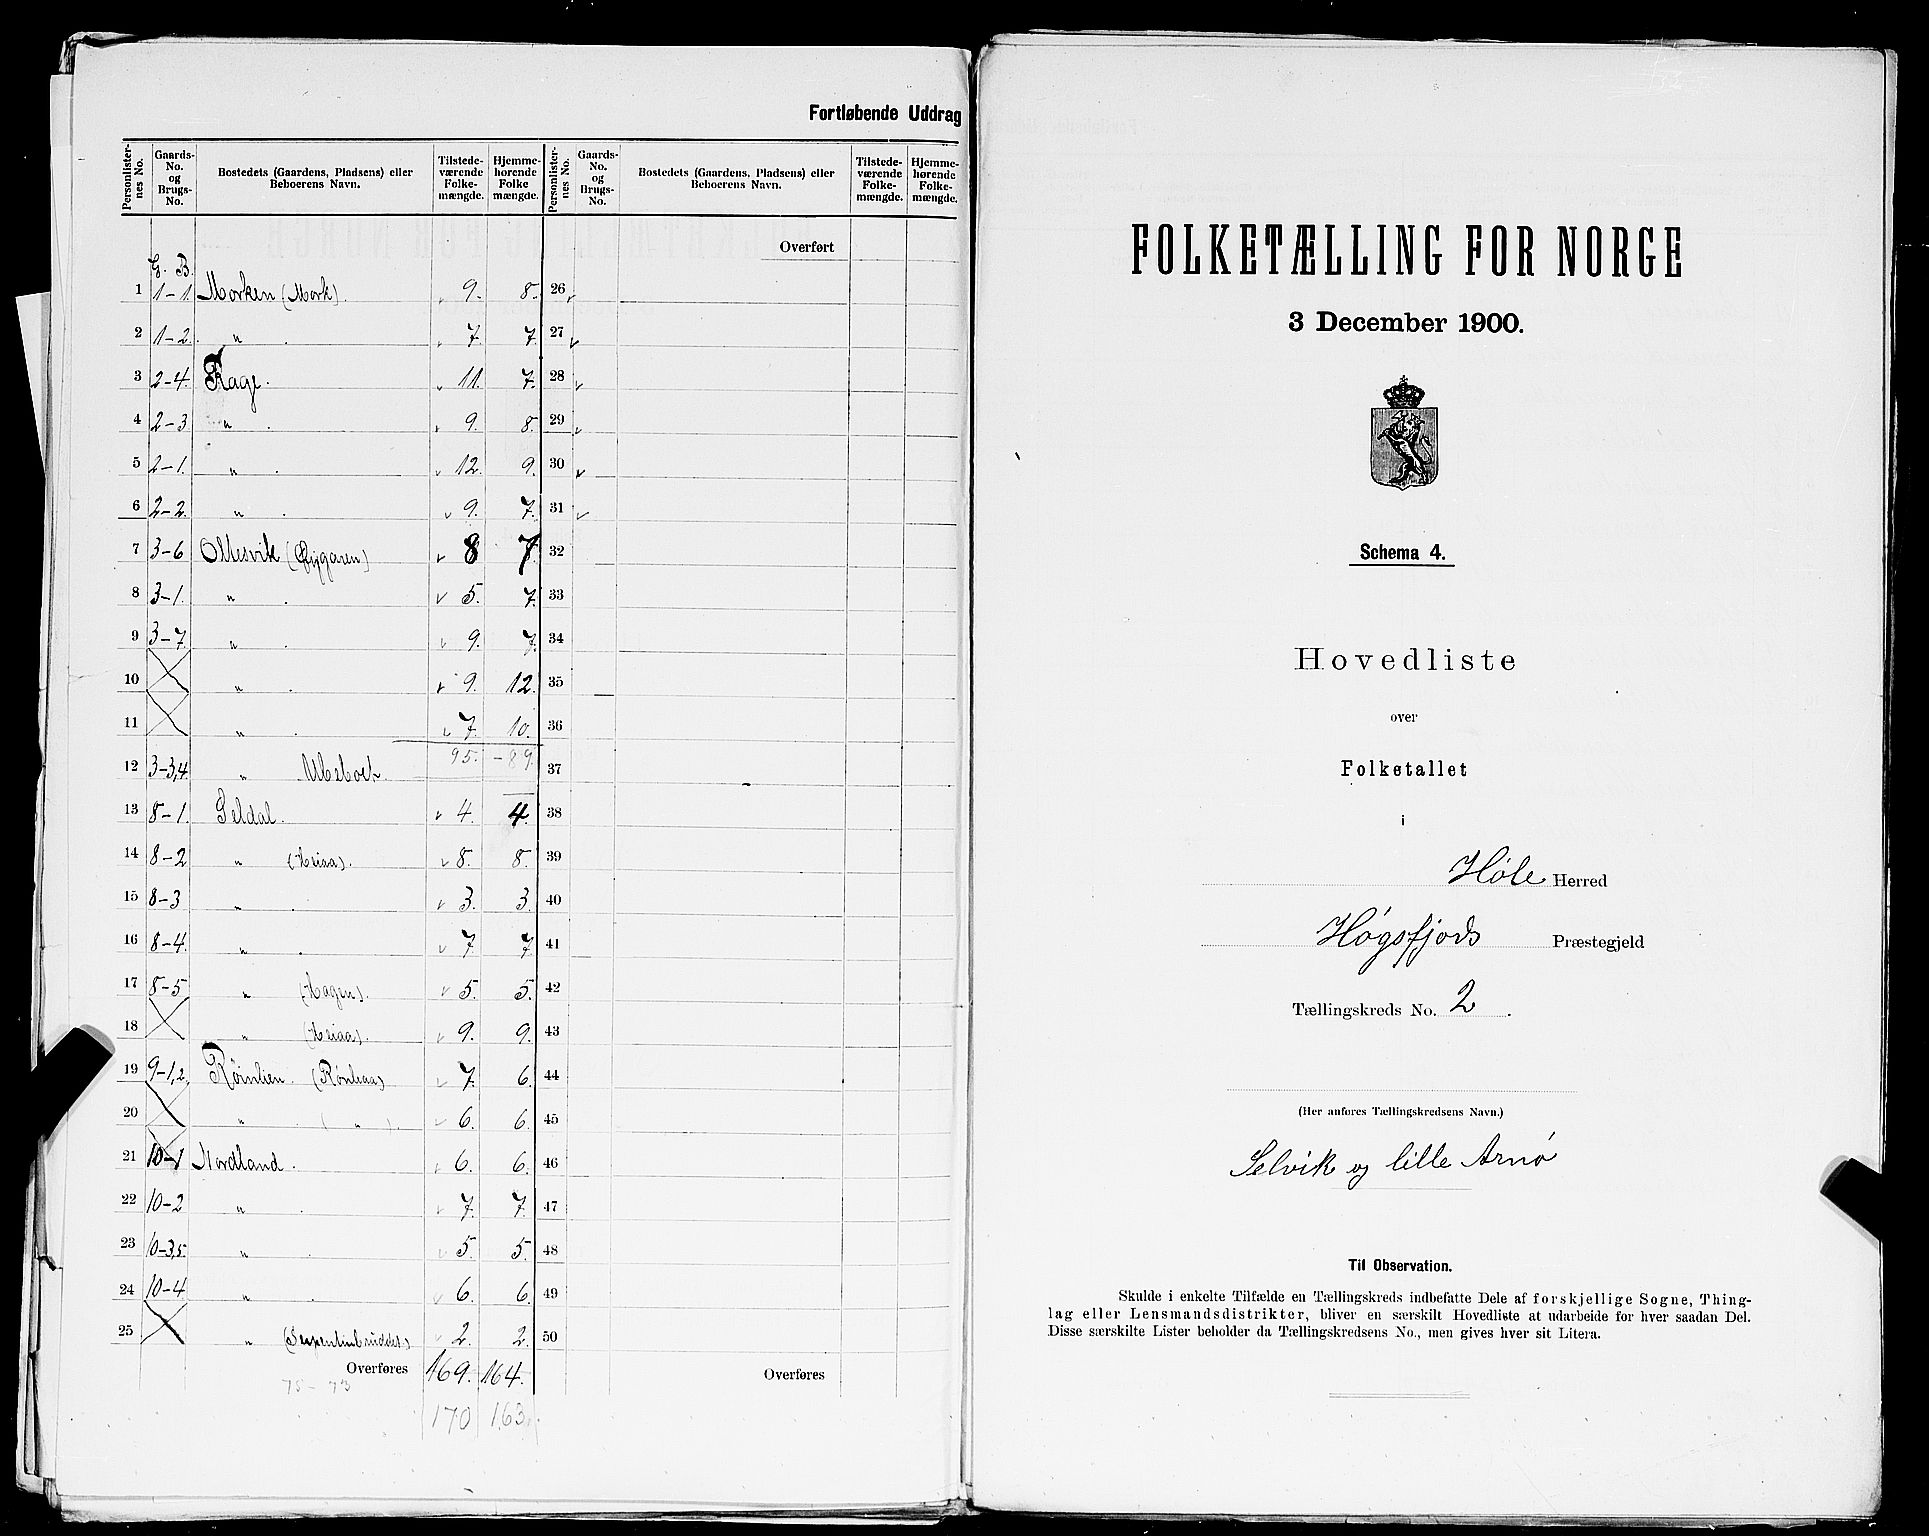 Fortløbende Uddrag
Personlister-nes No. Gaards-No. og Brugs-No. Bostedets (Gaardens, Pladsens) eller Beboerens Navn. Tilstede-værende Folke-mængde. Hjemme-hørende Folke mængde. Personlister-nes No. Gaards-No. og Brugs-No. Bostedets (Gaardens, Pladsens) eller Beboerens Navn. Tilstede-værende Folke-mængde. Hjemme-hørende Folke-mængde.
Overført
G. B.
1 1-1. Morken (Mork). 9. 8. 26
2 1-2. " . 7. 7. 27
3 2-4. Rage. 11. 7. 28
4 2-3 " . 9. 8. 29
5 2-1. " . 12. 9. 30
6 2-2. " . 9. 7. 31
7 3-6 Oltesvik 8 7. 32
8 3-1. " . 5. 7. 33
9 3-7. " . 9. 7. 34
10 " . 9. 12. 35
11 " . 7. 10. 36
95. - 89.
12 3-3,4. " Ubeboet. 37
13 8-1. Seldal. 4. 4. 38
14 8-2 " (Heiaa). 8. 8. 39
15 8-3 " . 3. 3. 40
16 8-4. " . 7. 7. 41
17 8-5 " (Hagen). 5. 5. 42
18 " (Heiaa). 9. 9. 43
19 9-1,2. 7. 6. 44
20 " . ( " ). 6. 6. 45
21 10-1 Nordland . 6. 6. 46
22 10-2 " . 7. 7. 47
23 10-3,5. " . 5. 5. 48
24 10-4 " . 6. 6. 49
25 " 2. 2. 50
Overføres 169. 164. Overføres
75 - 73
170 163.
FOLKETÆLLING FOR NORGE
3 December 1900.
Schema 4.
Hovedliste
over
Folketallet
i
Høle Herred
Høgsfjords Præstegjeld
Tællingskreds No. 2.
(Her anføres Tællingskredsens Navn.)
Selvik og lille Arnø
Til Observation.
Skulde i enkelte Tilfælde en Tællingskreds indbefatte Dele af forskjellige Sogne, Thing-
lag eller Lensmandsdistrikter, bliver en særskilt Hovedliste at udarbeide for hver saadan Del.
Disse særskilte Lister beholder da Tællingskredsens No., men gives hver sit Litera.